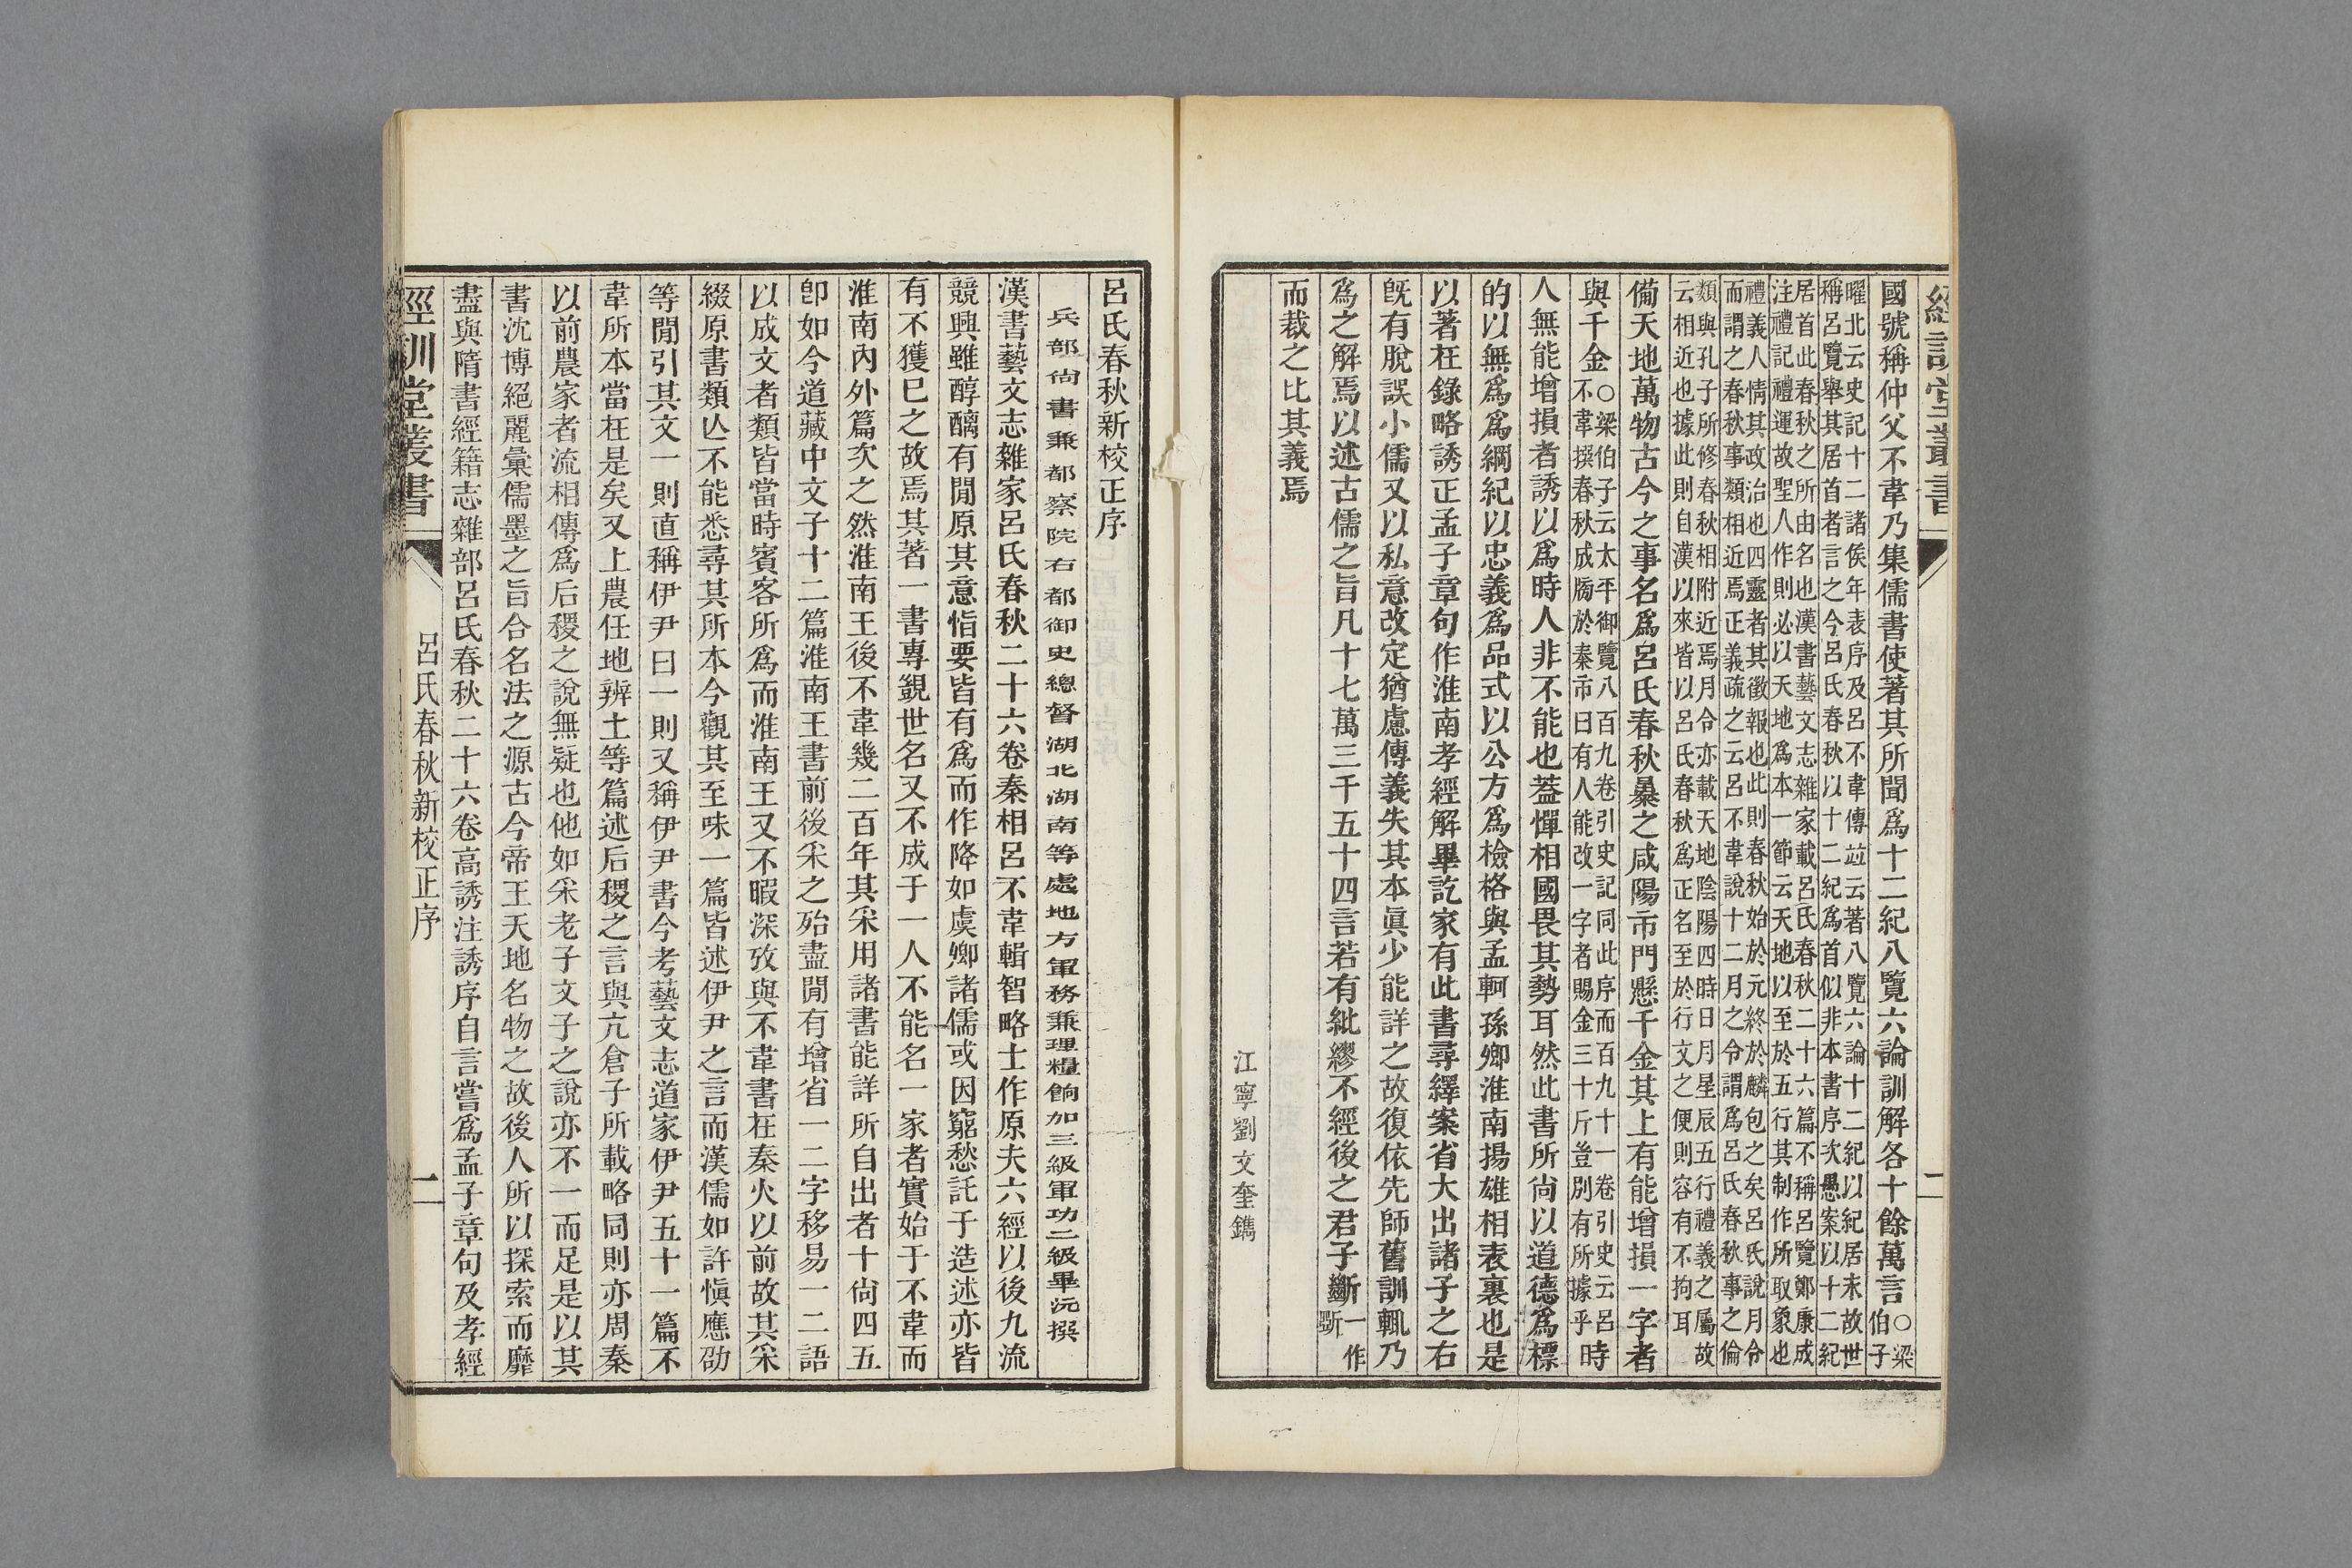 經訓堂叢書
二
國號稱仲父不韋乃集儒書使著其所聞爲十二紀八覽六論訓解各十餘萬言○梁伯子
曜北云史記十二諸侯年表序及呂不韋傳竝云著八覽六論十二紀以紀居末故世
稱呂覽舉其居首者言之今呂氏春秋以十二紀爲首似非本書序次愚案以十二紀
居首此春秋之所由名也漢書藝文志雜家載呂氏春秋二十六篇不稱呂覽鄭康成
注禮記禮運故聖人作則必以天地爲本一節云天地以至於五行其制作所取象也
禮義人情其政治也四靈者其徵報也此則春秋始於元終於麟包之矣呂氏說月令
而謂之春秋事類相近焉正義疏之云呂不韋說十二月之令謂爲呂氏春秋事之倫
類與孔子所修春秋相附近焉月令亦載天地陰陽四時日月星辰五行禮義之屬故
云相近也據此則自漢以來皆以呂氏春秋爲正名至於行文之便則容有不拘耳
備天地萬物古今之事名爲呂氏春秋暴之咸陽市門懸千金其上有能增損一字者
與千金○梁伯子云太平御覽八百九卷引史記同此序而百九十一卷引史云呂不韋撰春秋成牓於秦市曰有人能改一字者賜金三十斤豈別有所據乎時
人無能增損者誘以爲時人非不能也蓋憚相國畏其勢耳然此書所尙以道德爲標
的以無爲爲綱紀以忠義爲品式以公方爲檢格與孟軻孫卿淮南揚雄相表裏也是
以著在錄略誘正孟子章句作淮南孝經解畢訖家有此書尋繹案省大出諸子之右
旣有脫誤小儒又以私意改定猶慮傳義失其本眞少能詳之故復依先師舊訓輒乃
爲之解焉以述古儒之旨凡十七萬三千五十四言若有紕繆不經後之君子斷一作斲
而裁之比其義焉
江寧劉文奎鐫
呂氏春秋新校正序
兵部尙書兼都察院右都御史總督湖北湖南等處地方軍務兼理糧餉加三級軍功二級畢沅撰
漢書藝文志雜家呂氏春秋二十六卷秦相呂不韋輯智略士作原夫六經以後九流
競興雖醇醨有閒原其意恉要皆有爲而作降如虞卿諸儒或因窮愁託于造述亦皆
有不獲已之故焉其著一書專覬世名又不成于一人不能名一家者實始于不韋而
淮南內外篇次之然淮南王後不韋幾二百年其采用諸書能詳所自出者十尙四五
卽如今道藏中文子十二篇淮南王書前後采之殆盡閒有增省一二字移易一二語
以成文者類皆當時賓客所爲而淮南王又不暇深攷與不韋書在秦火以前故其采
綴原書類亾不能悉尋其所本今觀其至味一篇皆述伊尹之言而漢儒如許愼應劭
等閒引其文一則直稱伊尹曰一則又稱伊尹書今考藝文志道家伊尹五十一篇不
韋所本當在是矣又上農任地辨土等篇述后稷之言與亢倉子所載略同則亦周秦
以前農家者流相傳爲后稷之說無疑也他如采老子文子之說亦不一而足是以其
書沈博絕麗彙儒墨之旨合名法之源古今帝王天地名物之故後人所以探索而靡
盡與隋書經籍志雜部呂氏春秋二十六卷高誘注誘序自言嘗爲孟子章句及孝經
經訓堂叢書
呂氏春秋新校正序
二